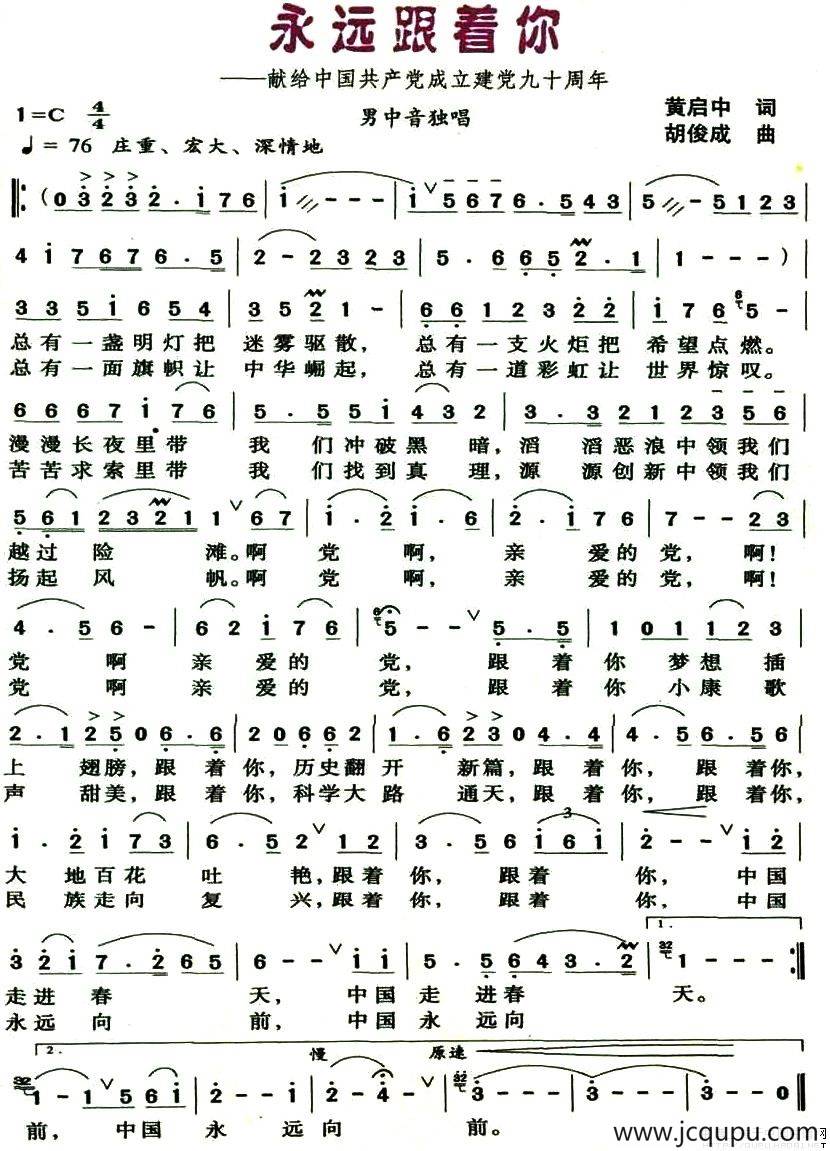 永远跟着你
——献给中国共产党成立建党九十周年
1=C 4/4 男中音独唱 黄启中 词
♩= 76 庄重、宏大、深情地 胡俊成 曲
(0 3 2 3 2 . 1 7 6 | 1 - - - | 1 5 6 7 6 . 5 4 3 | 5 - 5 1 2 3 |
4 1 7 6 7 6 . 5 | 2 - 2 3 2 3 | 5 . 6 6 5 2 . 1 | 1 - - - )
3 3 5 1 6 5 4 | 3 5 2 1 - | 6 6 1 2 3 2 2 | 1 7 6 5 - |
总有一盏明灯把 迷雾驱散， 总有一支火炬把 希望点燃。
总有一面旗帜让 中华崛起， 总有一道彩虹让 世界惊叹。
6 6 6 7 1 7 6 | 5 . 5 5 1 4 3 2 | 3 . 3 2 1 2 3 5 6 |
漫漫长夜里带 我们冲破黑暗，滔滔恶浪中领我们
苦苦求索里带 我们找到真理，源源创新中领我们
5 6 1 2 3 2 1 1 6 7 | 1 . 2 1 . 6 | 2 . 1 7 6 | 7 - - 2 3 |
越过险滩。啊 党啊， 亲爱的党，啊！
扬起风帆。啊 党啊， 亲爱的党，啊！
4 . 5 6 - | 6 2 1 7 6 | 5 - - 5 . 5 | 1 0 1 1 2 3 |
党啊 亲爱的 党， 跟着你 梦想插
党啊 亲爱的 党， 跟着你 小康歌
2 . 1 2 5 0 6 . 6 | 2 0 6 6 2 | 1 . 6 2 3 0 4 . 4 | 5 6 . 5 6 |
上翅膀，跟着你，历史翻开 新篇，跟着你， 跟着你，
声甜美，跟着你，科学大路 通天，跟着你， 跟着你，
1 . 2 1 7 3 | 6 . 5 1 2 | 3 . 5 6 1 6 1 | 2 - - 1 2 |
大地百花 吐艳，跟着你，跟着 你， 中国
民族走向 复兴，跟着你，跟着 你， 中国
3 2 1 7 . 2 6 5 | 6 - - 1 1 | 5 . 5 6 4 3 . 2 | 1. 1 - - - :|
走进春 天， 中国走进春 天。
永远向 前， 中国永远向
2. 慢 原速
1 - 1 5 6 1 | 2 - - 1 | 2 - 4 | 3 - - - | 3 - - - | 3 - - 0
前， 中国 永 远向 前。
www.jcqupu.com